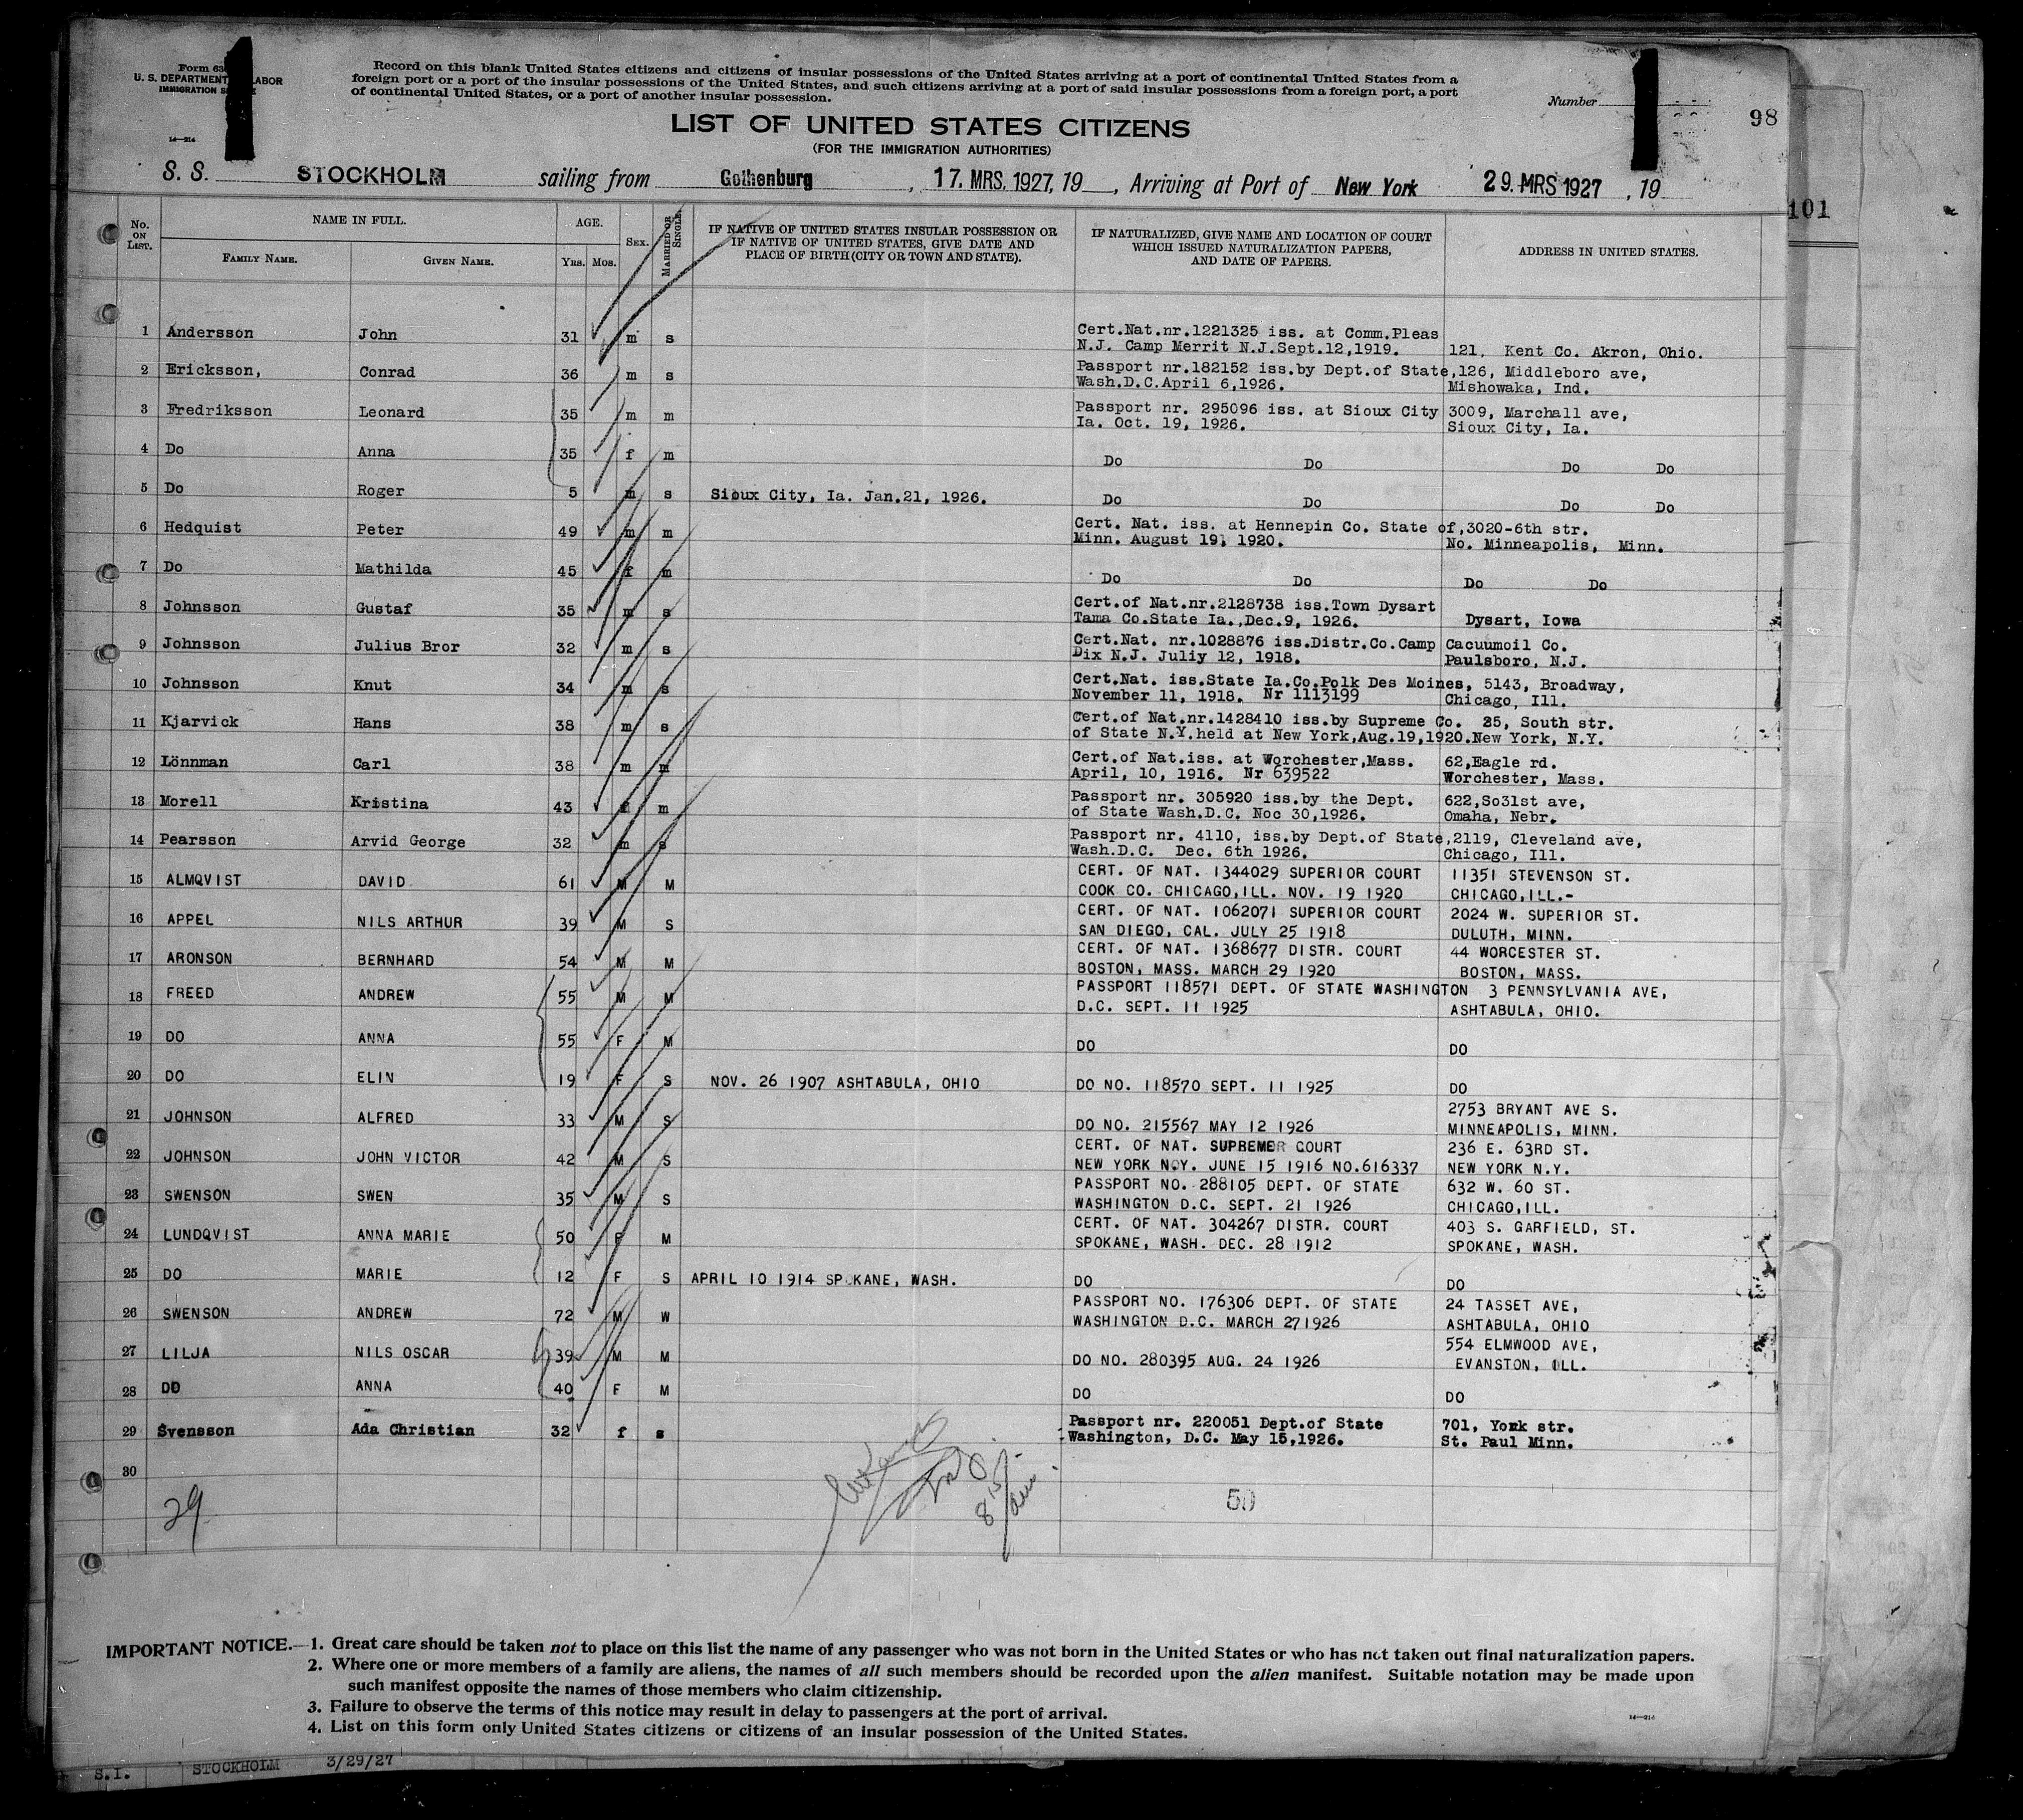 Form 63
U. S. DEPARTMENT LABOR
IMMIGRATION
14—214
Record on this blank United States citizens and citizens of insular possessions of the United States arriving at a port of continental United States from a
foreign port or a port of the insular possessions of the United States, and such citizens arriving at a port of said insular possessions from a foreign port, a port
of continental United States, or a port of another insular possession.
Number
98
101
LIST OF UNITED STATES CITIZENS
(FOR THE IMMIGRATION AUTHORITIES)
S. S. STOCKHOLM sailing from Gothenburg, 17. MRS. 1927, 19 , Arriving at Port of New York 29. MRS 1927, 19
No. ON LIST.
NAME IN FULL.
FAMILY NAME. GIVEN NAME.
AGE.
YRS. MOS.
SEX.
MARRIED OR SINGLE.
IF NATIVE OF UNITED STATES INSULAR POSSESSION OR
IF NATIVE OF UNITED STATES, GIVE DATE AND
PLACE OF BIRTH (CITY OR TOWN AND STATE).
IF NATURALIZED, GIVE NAME AND LOCATION OF COURT
WHICH ISSUED NATURALIZATION PAPERS,
AND DATE OF PAPERS.
ADDRESS IN UNITED STATES.
1 Andersson John 31 m s Cert.Nat.nr.1221325 iss. at Comm.Pleas
N.J. Camp Merrit N.J.Sept.12,1919. 121, Kent Co. Akron, Ohio.
2 Ericksson, Conrad 36 m s Passport nr.182152 iss.by Dept.of State, 126, Middleboro ave,
Wash.D.C.April 6,1926. Mishowaka, Ind.
3 Fredriksson Leonard 35 m m Passport nr. 295096 iss. at Sioux City 3009, Marchall ave,
Ia. Oct. 19, 1926. Sioux City, Ia.
4 Do Anna 35 f m Do Do Do Do
5 Do Roger 5 m s Sioux City, Ia. Jan.21, 1926. Do Do Do Do
6 Hedquist Peter 49 m m Cert. Nat. iss. at Hennepin Co. State of, 3020-6th str.
Minn. August 19, 1920. No. Minneapolis, Minn.
7 Do Mathilda 45 f m Do Do Do Do
8 Johnsson Gustaf 35 m s Cert.of Nat.nr.2128738 iss.Town Dysart
Tama Co.State Ia.,Dec.9, 1926. Dysart, Iowa
9 Johnsson Julius Bror 32 m s Cert.Nat. nr.1028876 iss.Distr.Co.Camp Cacuumoil Co.
Dix N.J. Juliy 12, 1918. Paulsboro, N.J.
10 Johnsson Knut 34 m s Cert.Nat. iss.State Ia.Co.Polk Des Moines, 5143, Broadway,
November 11, 1918. Nr 1113199 Chicago, Ill.
11 Kjarvick Hans 38 m s Cert.of Nat.nr.1428410 iss.by Supreme Co. 25, South str.
of State N.Y.held at New York,Aug.19,1920.New York, N.Y.
12 Lönnman Carl 38 m m Cert.of Nat.iss. at Worchester,Mass. 62,Eagle rd.
April, 10, 1916. Nr 639522 Worchester, Mass.
13 Morell Kristina 43 f m Passport nr. 305920 iss.by the Dept. 622,So31st ave,
of State Wash.D.C. Noc 30,1926. Omaha, Nebr.
14 Pearsson Arvid George 32 m s Passport nr. 4110, iss.by Dept.of State, 2119, Cleveland ave,
Wash.D.C. Dec. 6th 1926. Chicago, Ill.
15 ALMQVIST DAVID 61 M M CERT. OF NAT. 1344029 SUPERIOR COURT 11351 STEVENSON ST.
COOK CO. CHICAGO,ILL. NOV. 19 1920 CHICAGO,ILL.-
16 APPEL NILS ARTHUR 39 M S CERT. OF NAT. 1062071 SUPERIOR COURT 2024 W. SUPERIOR ST.
SAN DIEGO, CAL. JULY 25 1918 DULUTH, MINN.
17 ARONSON BERNHARD 54 M M CERT. OF NAT. 1368677 DISTR. COURT 44 WORCESTER ST.
BOSTON, MASS. MARCH 29 1920 BOSTON, MASS.
18 FREED ANDREW 55 M M PASSPORT 118571 DEPT. OF STATE WASHINGTON 3 PENNSYLVANIA AVE,
D.C. SEPT. 11 1925 ASHTABULA, OHIO.
19 DO ANNA 55 F M DO DO
20 DO ELIN 19 F S NOV. 26 1907 ASHTABULA, OHIO DO NO. 118570 SEPT. 11 1925 DO
21 JOHNSON ALFRED 33 M S 2753 BRYANT AVE S.
DO NO. 215567 MAY 12 1926 MINNEAPOLIS, MINN.
22 JOHNSON JOHN VICTOR 42 M S CERT. OF NAT. SUPREMER COURT 236 E. 63RD ST.
NEW YORK NOY. JUNE 15 1916 NO.616337 NEW YORK N.Y.
23 SWENSON SWEN 35 M S PASSPORT NO. 288105 DEPT. OF STATE 632 W. 60 ST.
WASHINGTON D.C. SEPT. 21 1926 CHICAGO,ILL.
24 LUNDQVIST ANNA MARIE 50 F M CERT. OF NAT. 304267 DISTR. COURT 403 S. GARFIELD, ST.
SPOKANE, WASH. DEC. 28 1912 SPOKANE, WASH.
25 DO MARIE 12 F S APRIL 10 1914 SPOKANE, WASH. DO DO
26 SWENSON ANDREW 72 M W PASSPORT NO. 176306 DEPT. OF STATE 24 TASSET AVE,
WASHINGTON D.C. MARCH 27 1926 ASHTABULA, OHIO
27 LILJA NILS OSCAR 39 M M 554 ELMWOOD AVE,
DO NO. 280395 AUG. 24 1926 EVANSTON, ILL.
28 DO ANNA 40 F M DO DO
29 Svensson Ada Christian 32 f s Passport nr. 220051 Dept.of State 701, York str.
Washington, D.C. May 15,1926. St. Paul Minn.
30
29
50
IMPORTANT NOTICE.—1. Great care should be taken not to place on this list the name of any passenger who was not born in the United States or who has not taken out final naturalization papers.
2. Where one or more members of a family are aliens, the names of all such members should be recorded upon the alien manifest. Suitable notation may be made upon
such manifest opposite the names of those members who claim citizenship.
3. Failure to observe the terms of this notice may result in delay to passengers at the port of arrival.
4. List on this form only United States citizens or citizens of an insular possession of the United States.
14—214
S.I. STOCKHOLM 3/29/27